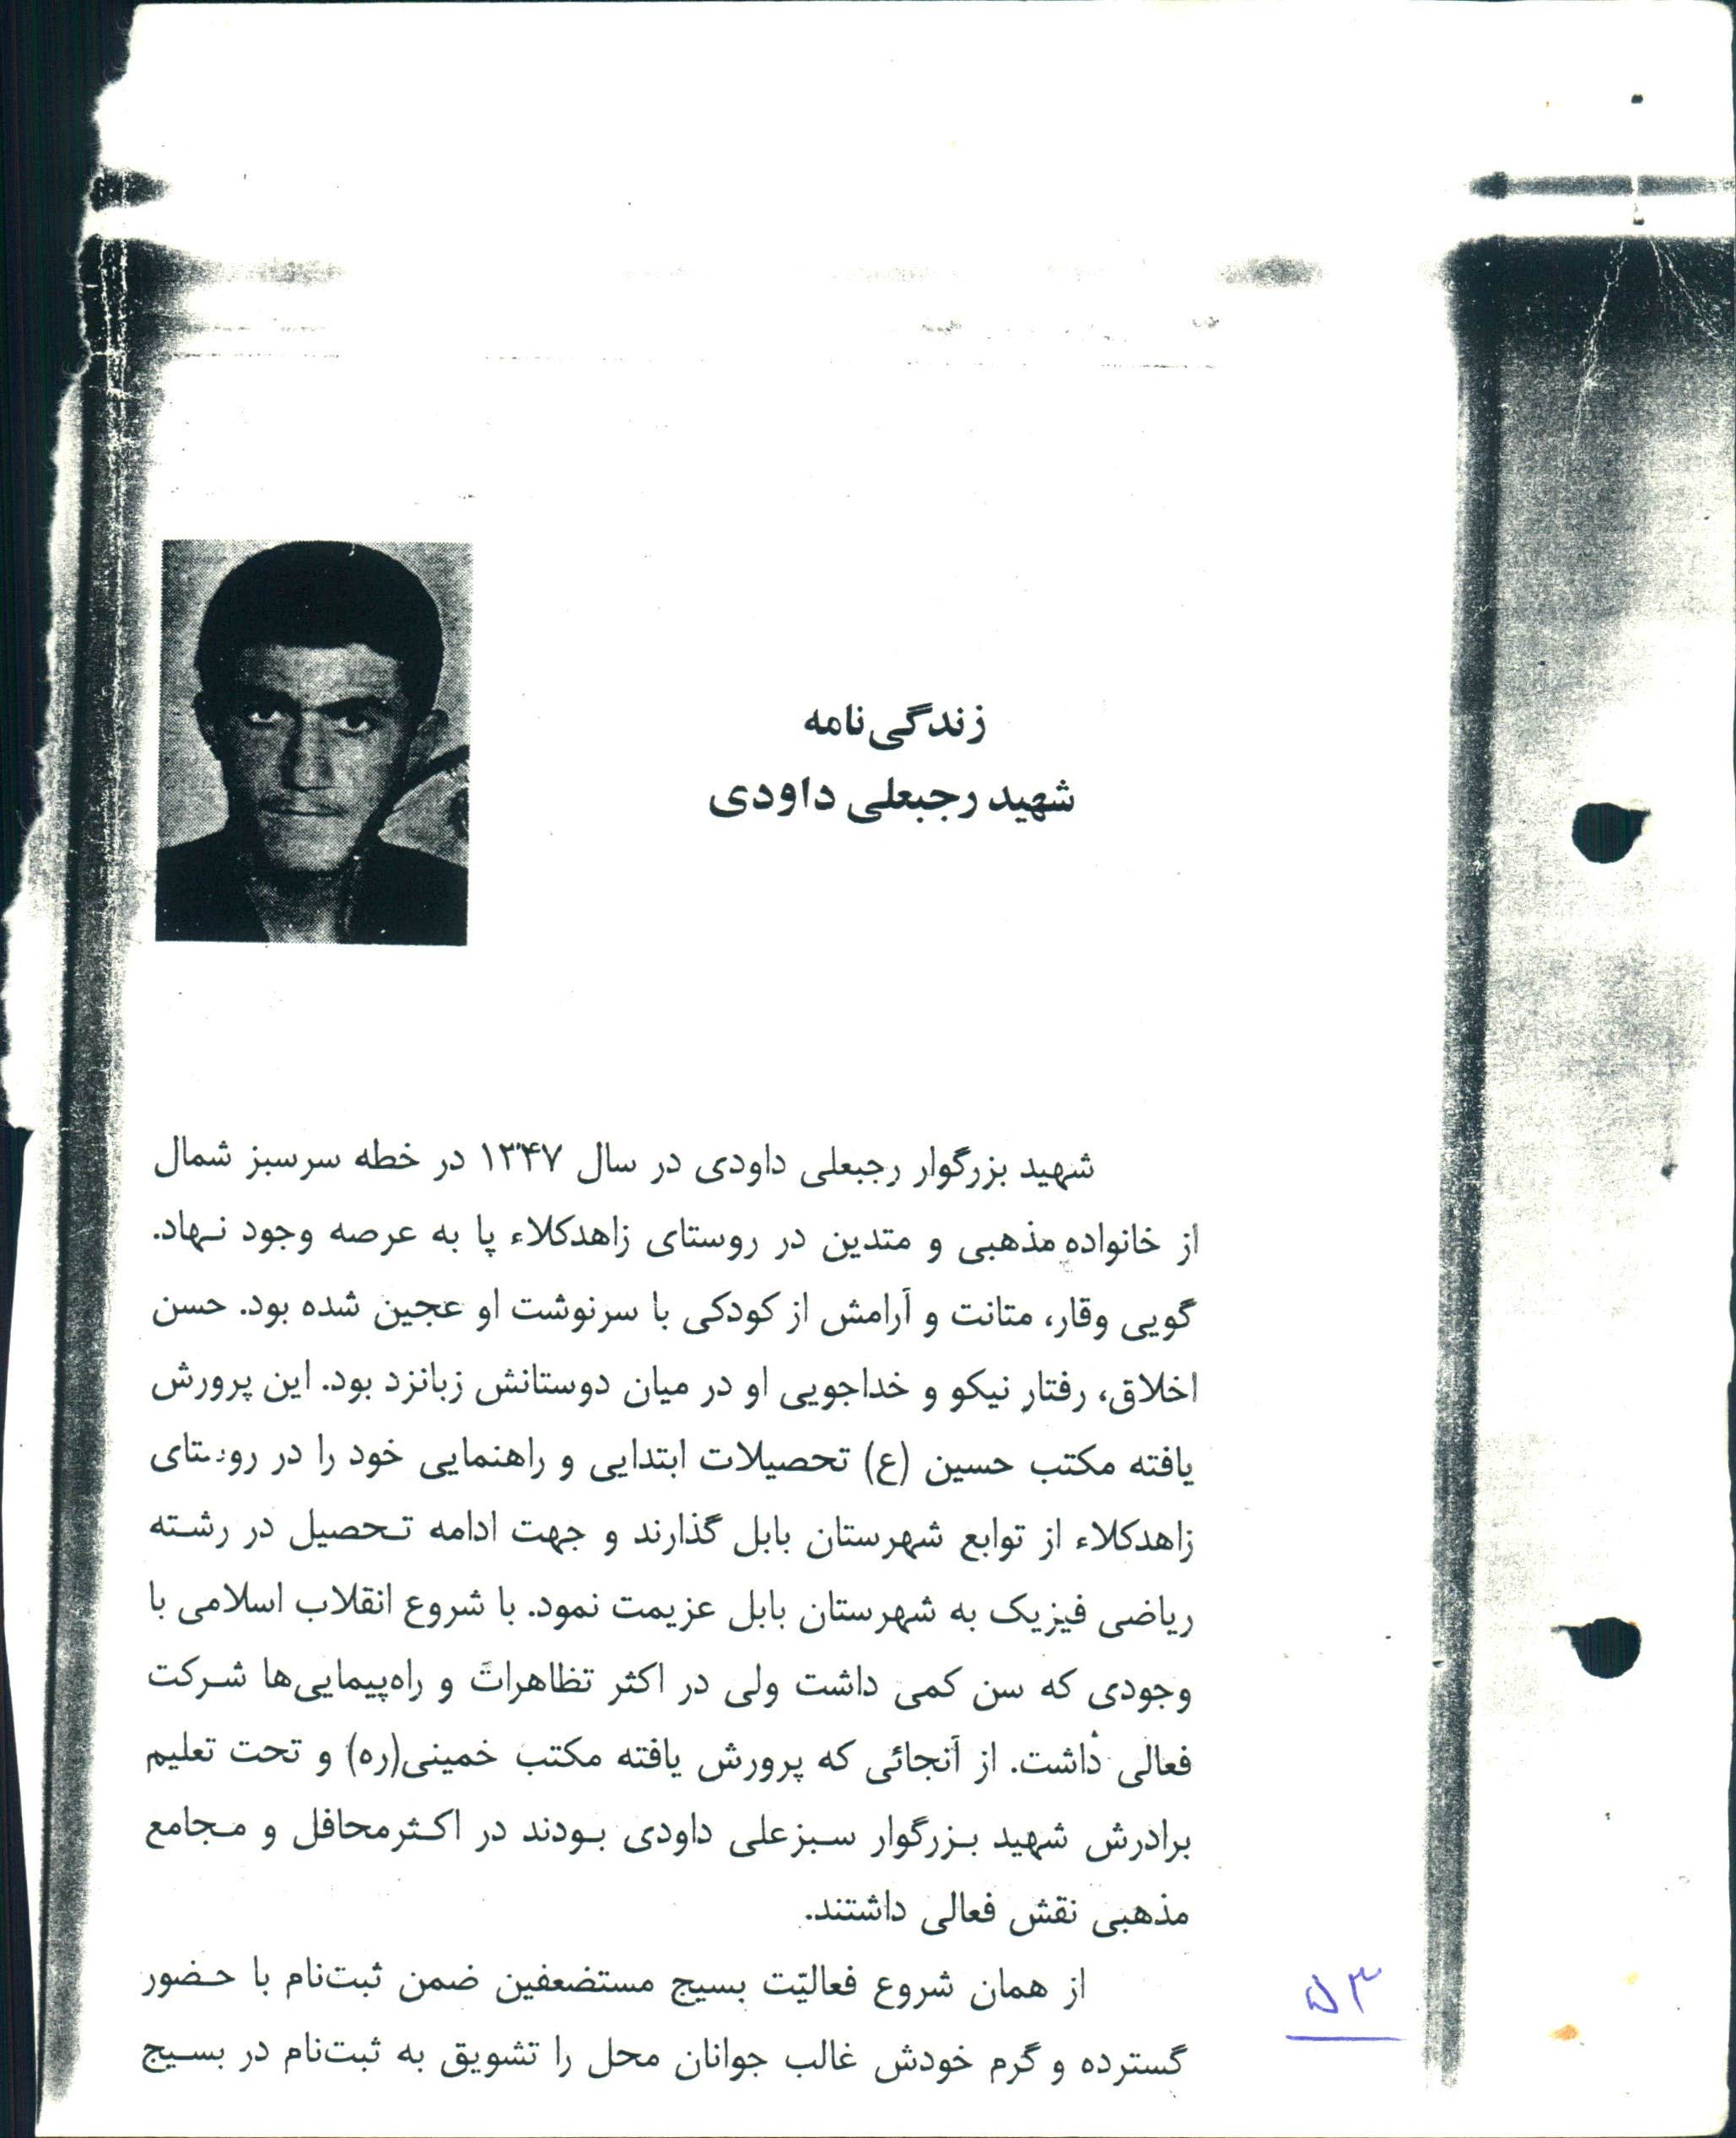 زندگی‌نامه
شهید رجبعلی داودی
شهید بزرگوار رجبعلی داودی در سال ۱۳۴۷ در خطه سرسبز شمال
از خانواده مذهبی و متدین در روستای زاهدکلاء پا به عرصه وجود نهاد.
گویی وقار، متانت و آرامش از کودکی با سرنوشت او عجین شده بود. حسن
اخلاق، رفتار نیکو و خداجویی او در میان دوستانش زبانزد بود. این پرورش
یافته مکتب حسین (ع) تحصیلات ابتدایی و راهنمایی خود را در روستای
زاهدکلاء از توابع شهرستان بابل گذارند و جهت ادامه تحصیل در رشته
ریاضی فیزیک به شهرستان بابل عزیمت نمود. با شروع انقلاب اسلامی با
وجودی که سن کمی داشت ولی در اکثر تظاهرات و راه‌پیمایی‌ها شرکت
فعالی داشت. از آنجائی که پرورش یافته مکتب خمینی(ره) و تحت تعلیم
برادرش شهید بزرگوار سبزعلی داودی بودند در اکثرمحافل و مجامع
مذهبی نقش فعالی داشتند.
از همان شروع فعالیّت بسیج مستضعفین ضمن ثبت‌نام با حضور
گسترده و گرم خودش غالب جوانان محل را تشویق به ثبت‌نام در بسیج
۵۳